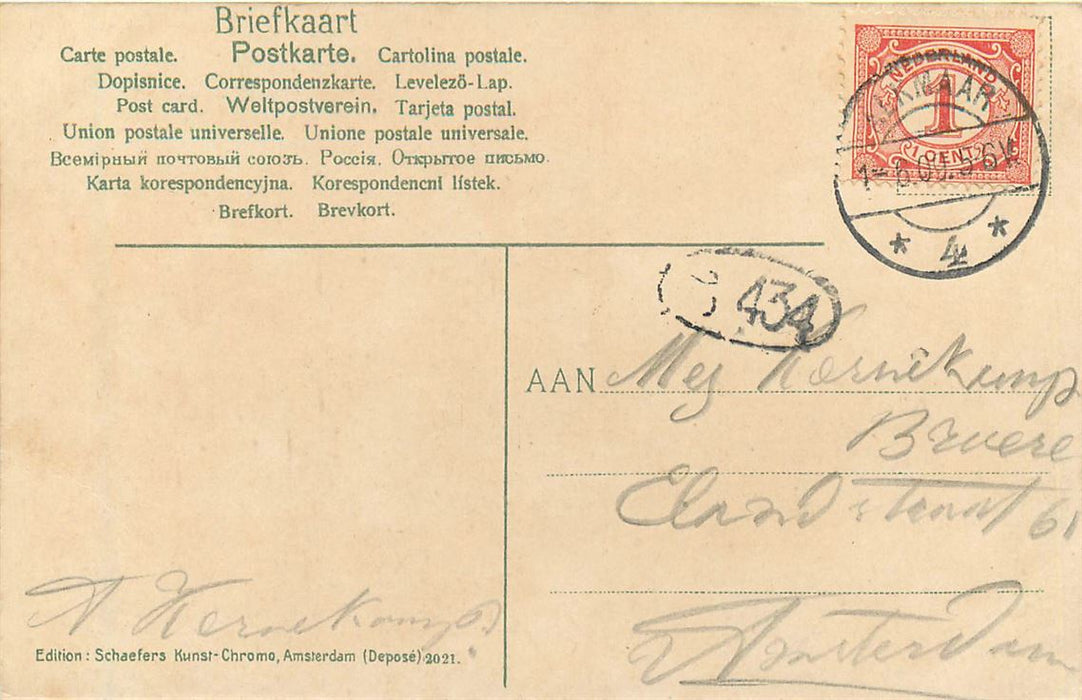 Briefkaart
Carte postale. Postkarte. Cartolina postale.
Dopisnice. Correspondenzkarte. Levelező-Lap.
Post card. Weltpostverein. Tarjeta postal.
Union postale universelle. Unione postale universale.
Всемірный почтовый союзъ. Россія. Открытое письмо.
Karta korespondencyjna. Korespondencni lístek.
Brefkort. Brevkort.
NEDERLAND
1
1 CENT
ALKMAAR
* 4 *
434
AAN Mej Hernekamp
Bruere
Elandstraat 61
Amsterdam
A Hernekamp
Edition: Schaefers Kunst-Chromo, Amsterdam (Deposé) 2021.